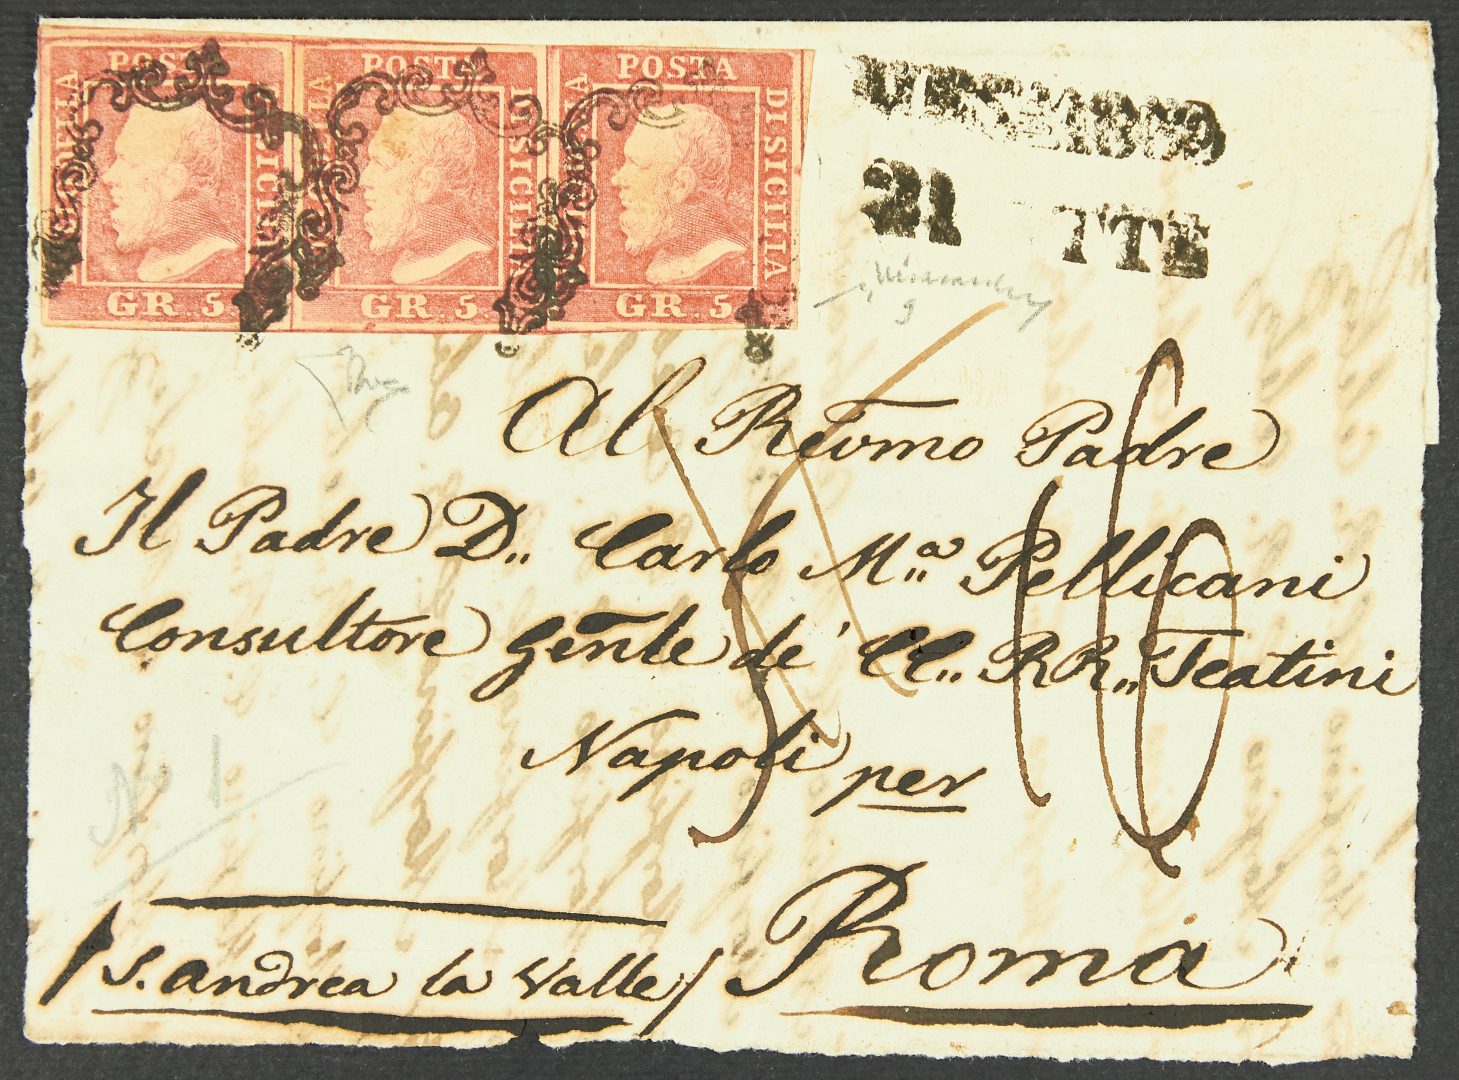 POSTA POSTA POSTA
DI SICILIA DI SICILIA
GR. 5. GR. 5. GR. 5
21 TTE
Al Revmo Padre
Il Padre D,, Carlo M,,a Pellicani
Consultore Genle de' CC,, RR,, Teatini
Napoli per
Roma
/ S. Andrea la Valle /
16
N. 1